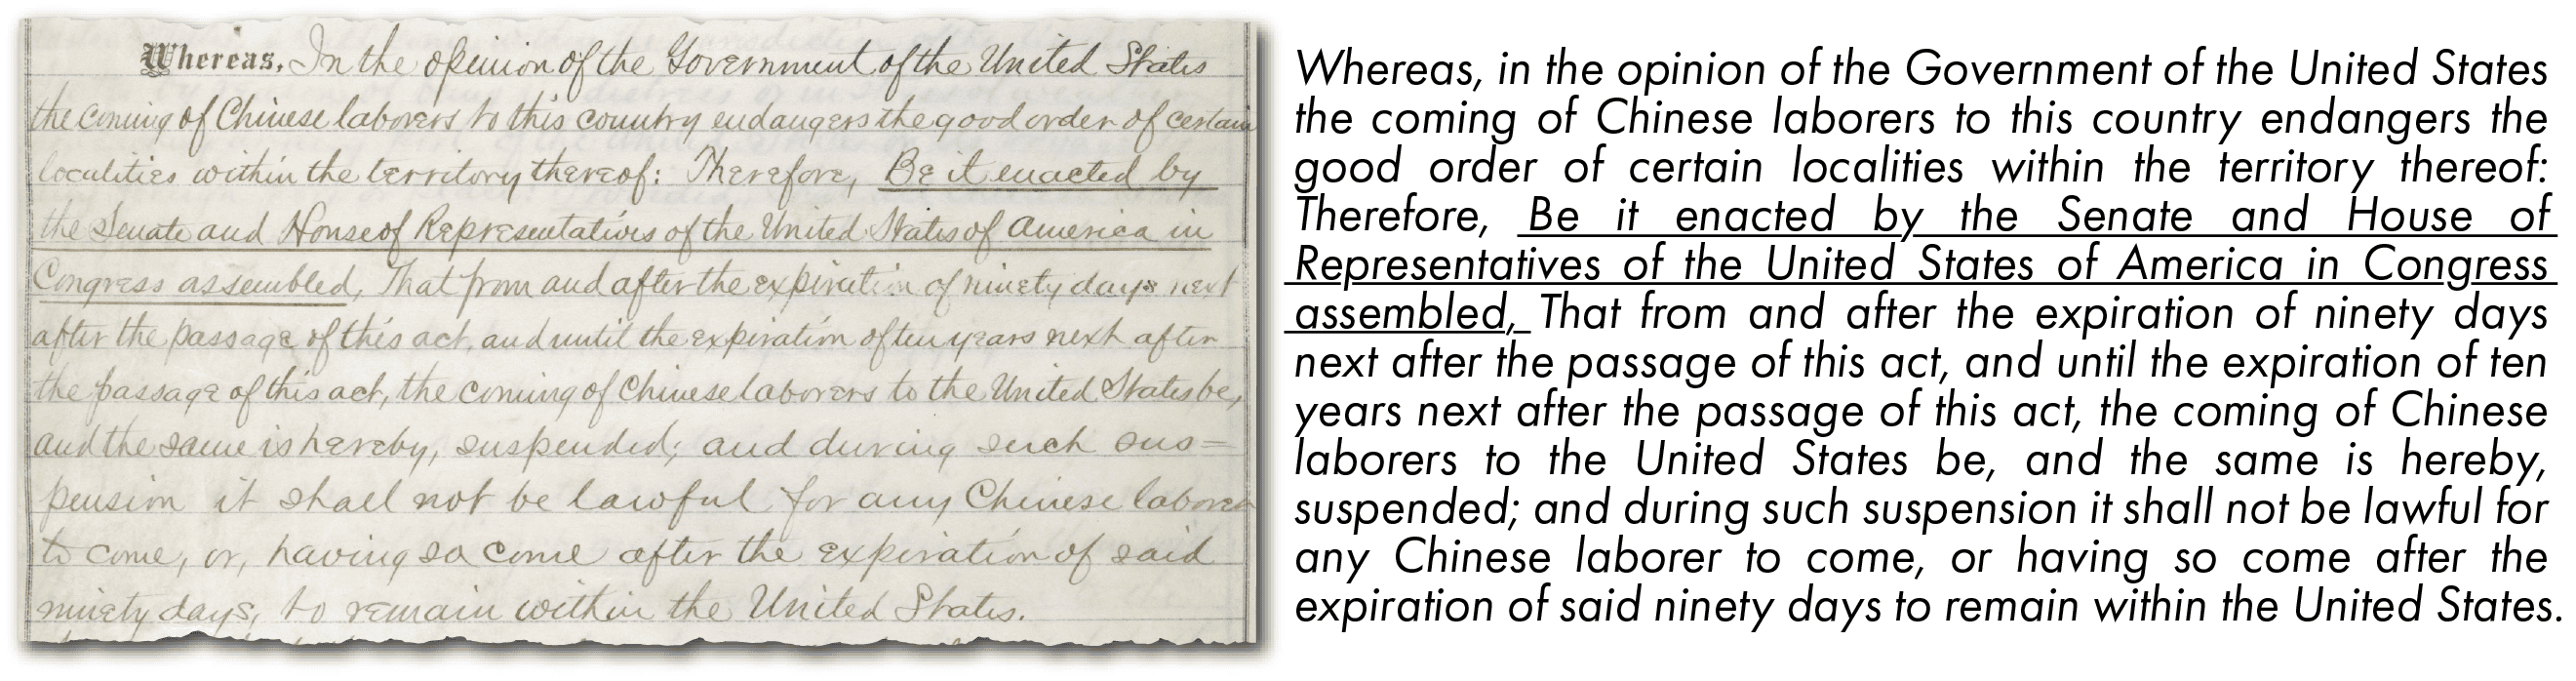 Whereas, In the opinion of the Government of the United States
the coming of Chinese laborers to this country endangers the good order of certain
localities within the territory thereof: Therefore, Be it enacted by
the Senate and House of Representatives of the United States of America in
Congress assembled, That from and after the expiration of ninety days next
after the passage of this act, and until the expiration of ten years next after
the passage of this act, the coming of Chinese laborers to the United States be,
and the same is hereby, suspended; and during such sus=
pension it shall not be lawful for any Chinese laborer
to come, or, having so come after the expiration of said
ninety days, to remain within the United States.
Whereas, in the opinion of the Government of the United States
the coming of Chinese laborers to this country endangers the
good order of certain localities within the territory thereof:
Therefore, Be it enacted by the Senate and House of
Representatives of the United States of America in Congress
assembled, That from and after the expiration of ninety days
next after the passage of this act, and until the expiration of ten
years next after the passage of this act, the coming of Chinese
laborers to the United States be, and the same is hereby,
suspended; and during such suspension it shall not be lawful for
any Chinese laborer to come, or having so come after the
expiration of said ninety days to remain within the United States.